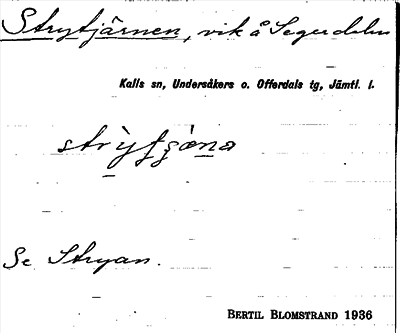 Strytjärnen, vik å Segerdelen
Kalls sn, Undersåkers o. Offerdals tg, Jämtl. l.
Se Stryan.
BERTIL BLOMSTRAND 1936